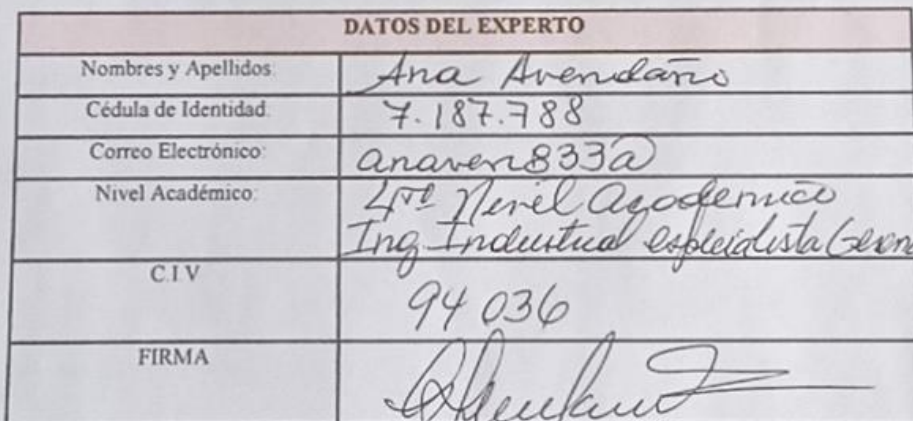 DATOS DEL EXPERTO
Nombres y Apellidos: Ana Avendaño
Cédula de Identidad: 7.187.788
Correo Electrónico: anaven833@
Nivel Académico: 4to Nivel Academico
Ing. Industrial especialista Geren
C.I.V 94 036
FIRMA